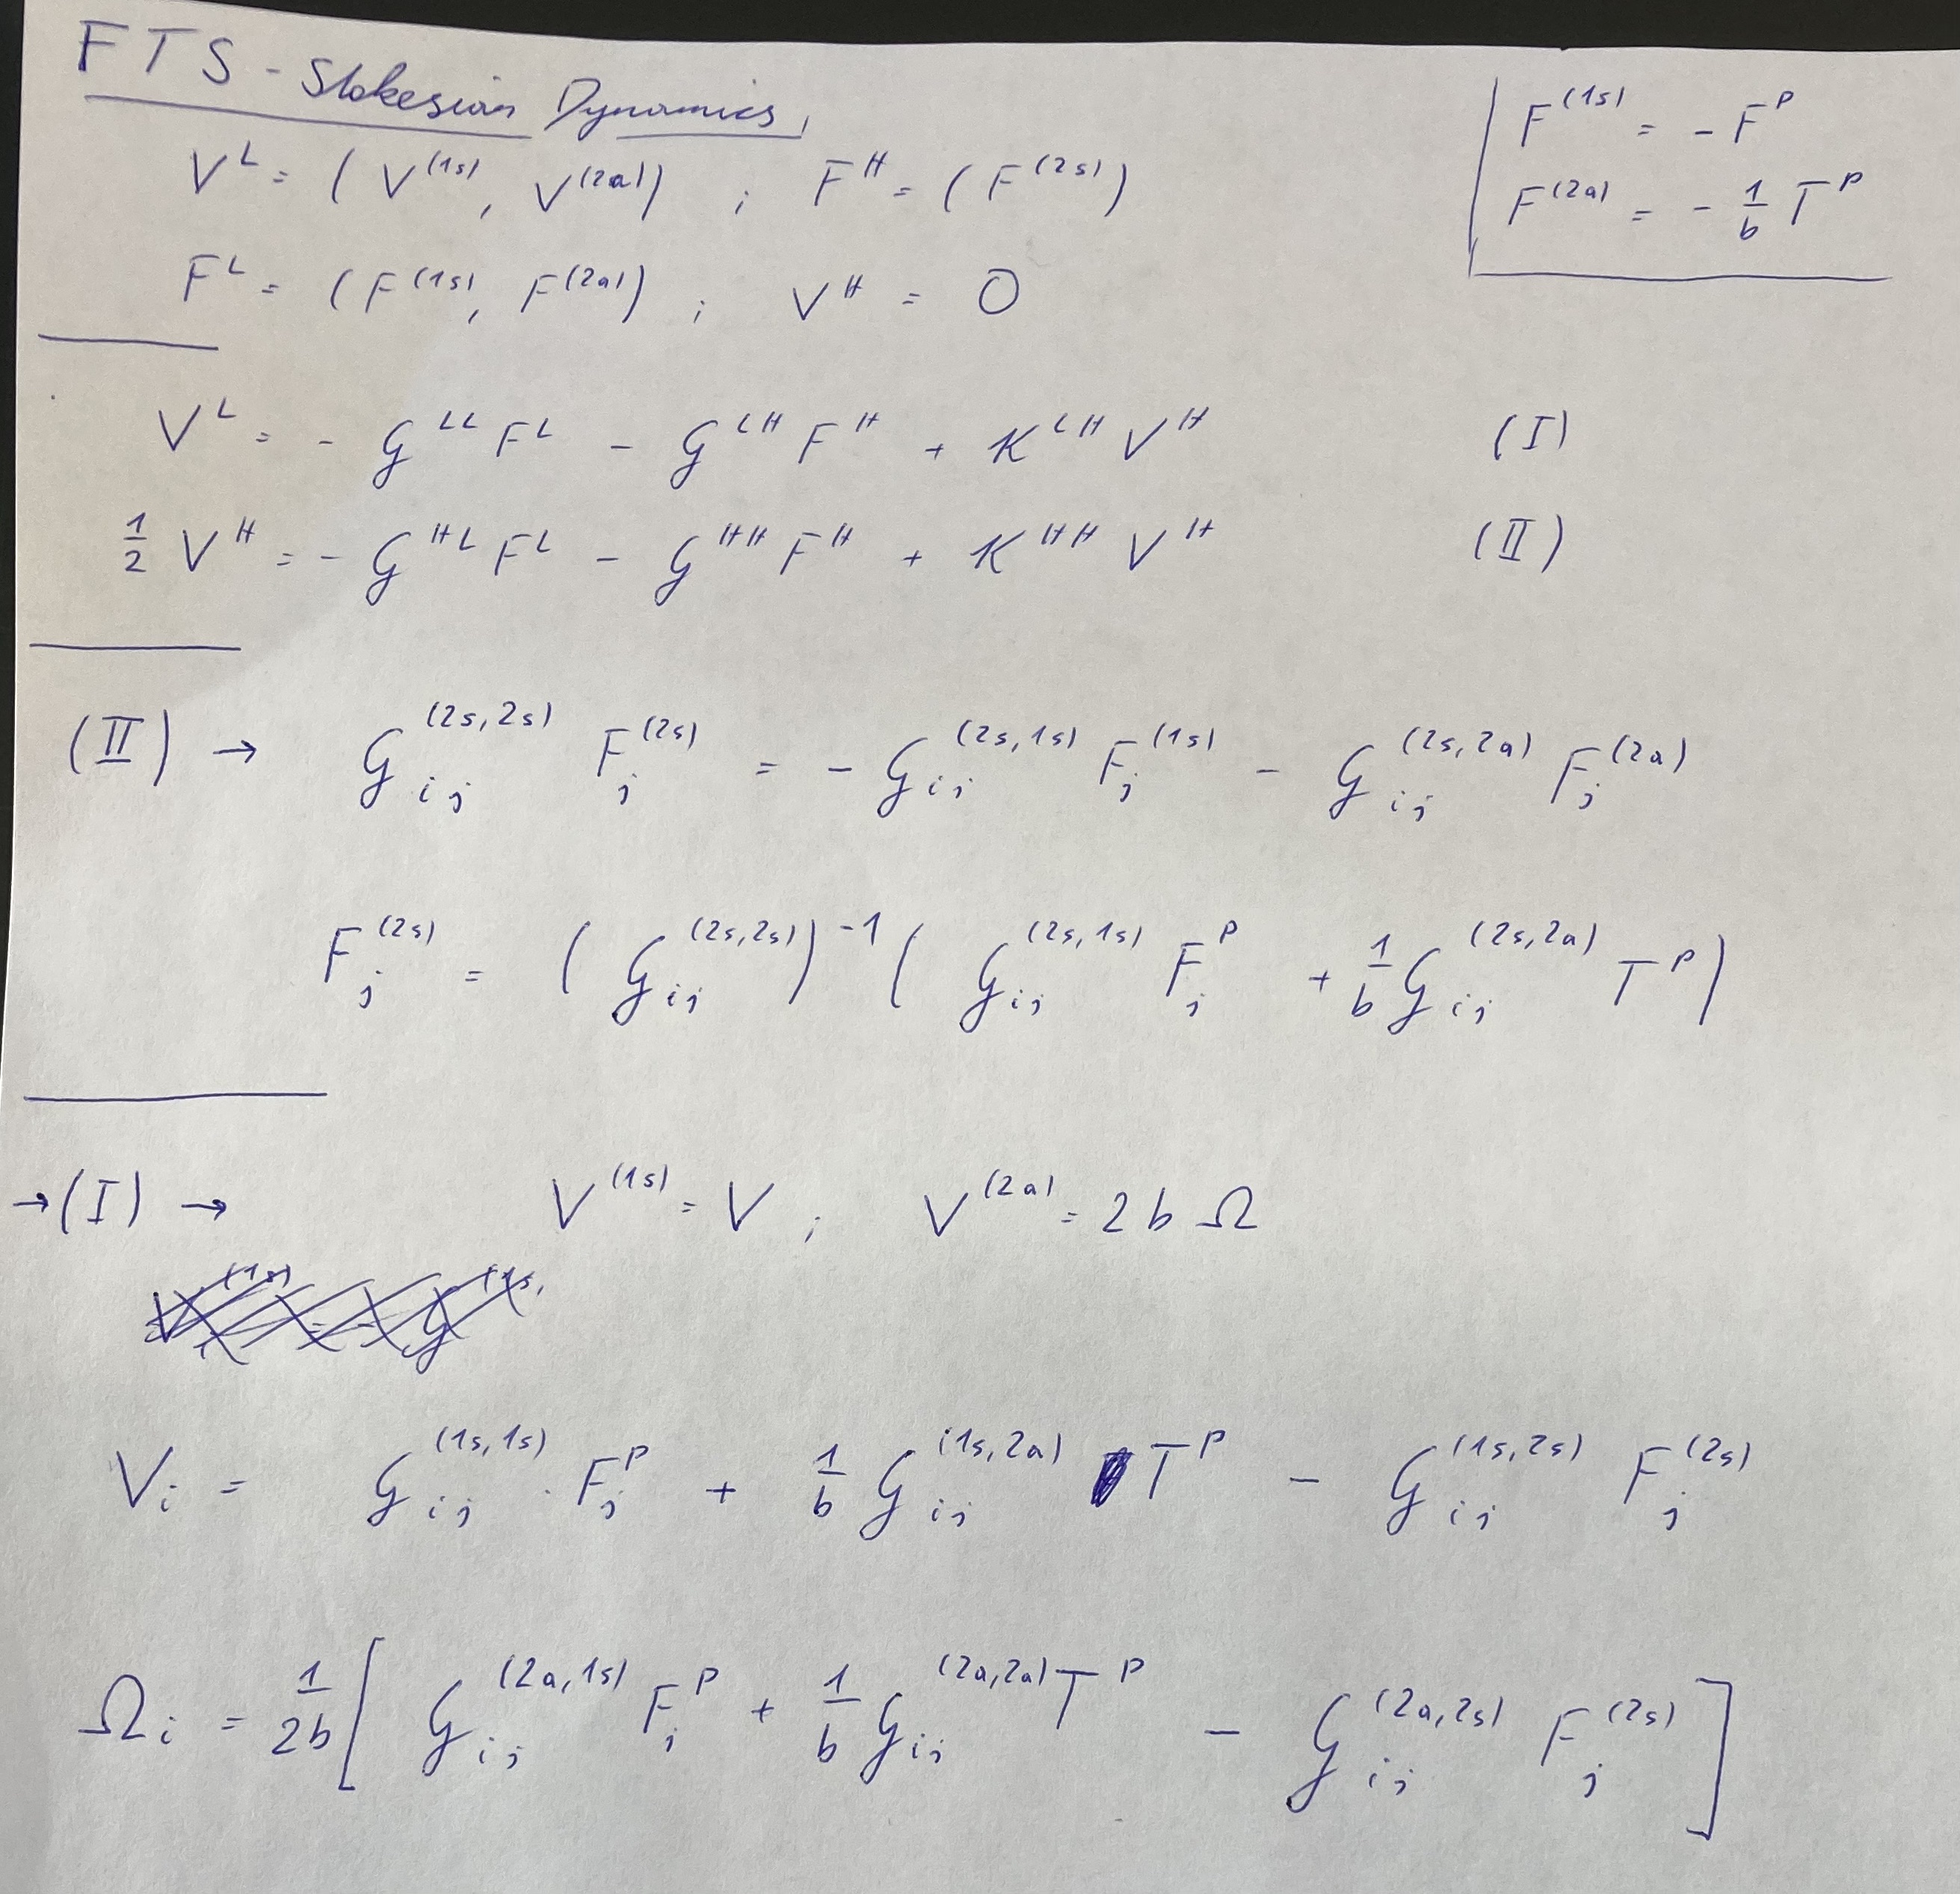 FTS - Stokesian Dynamics,
F^(1s) = - F^P
F^(2a) = - 1/b T^P
V^L = (V^(1s), V^(2a)) ; F^H = (F^(2s))
F^L = (F^(1s), F^(2a)) ; V^H = 0
V^L = - G^LL F^L - G^LH F^H + K^LH V^H (I)
1/2 V^H = - G^HL F^L - G^HH F^H + K^HH V^H (II)
(II) → G_ij^(2s,2s) F_j^(2s) = - G_ij^(2s,1s) F_j^(1s) - G_ij^(2s,2a) F_j^(2a)
F_j^(2s) = (G_ij^(2s,2s))^-1 (G_ij^(2s,1s) F_j^P + 1/b G_ij^(2s,2a) T^P)
→ (I) → V^(1s) = V ; V^(2a) = 2b Ω
V_i = G_ij^(1s,1s) · F_j^P + 1/b G_ij^(1s,2a) T^P - G_ij^(1s,2s) F_j^(2s)
Ω_i = 1/2b [ G_ij^(2a,1s) F_j^P + 1/b G_ij^(2a,2a) T^P - G_ij^(2a,2s) F_j^(2s) ]